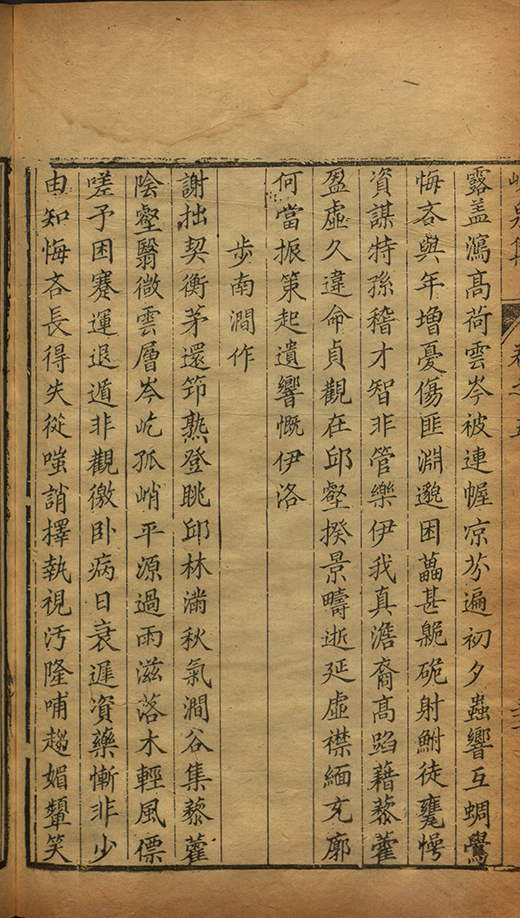 露盖瀉髙荷雲岑被連幄凉芬遍初夕蟲響互蜩鷽
悔吝與年増憂傷匪淵邈困藟甚臲硊射鮒徒甕愕
資謀特孫稽才智非管樂伊我真澹裔髙蹈藉藜藿
盈虛久違命貞觀在邱壑揆景疇逝延虛襟緬充廓
何當振策起遺響慨伊洛
步南澗作
謝拙契衡茅還筇熟登眺邱林滿秋氣澗谷集藜藿
陰壑翳微雲層岑屹孤峭平源過雨滋落木輕風僄
嗟予困蹇運退遁非觀徼卧病日衰遲資藥慚非少
由知悔吝長得失從嗤誚擇執視汚隆哺趨媚顰笑